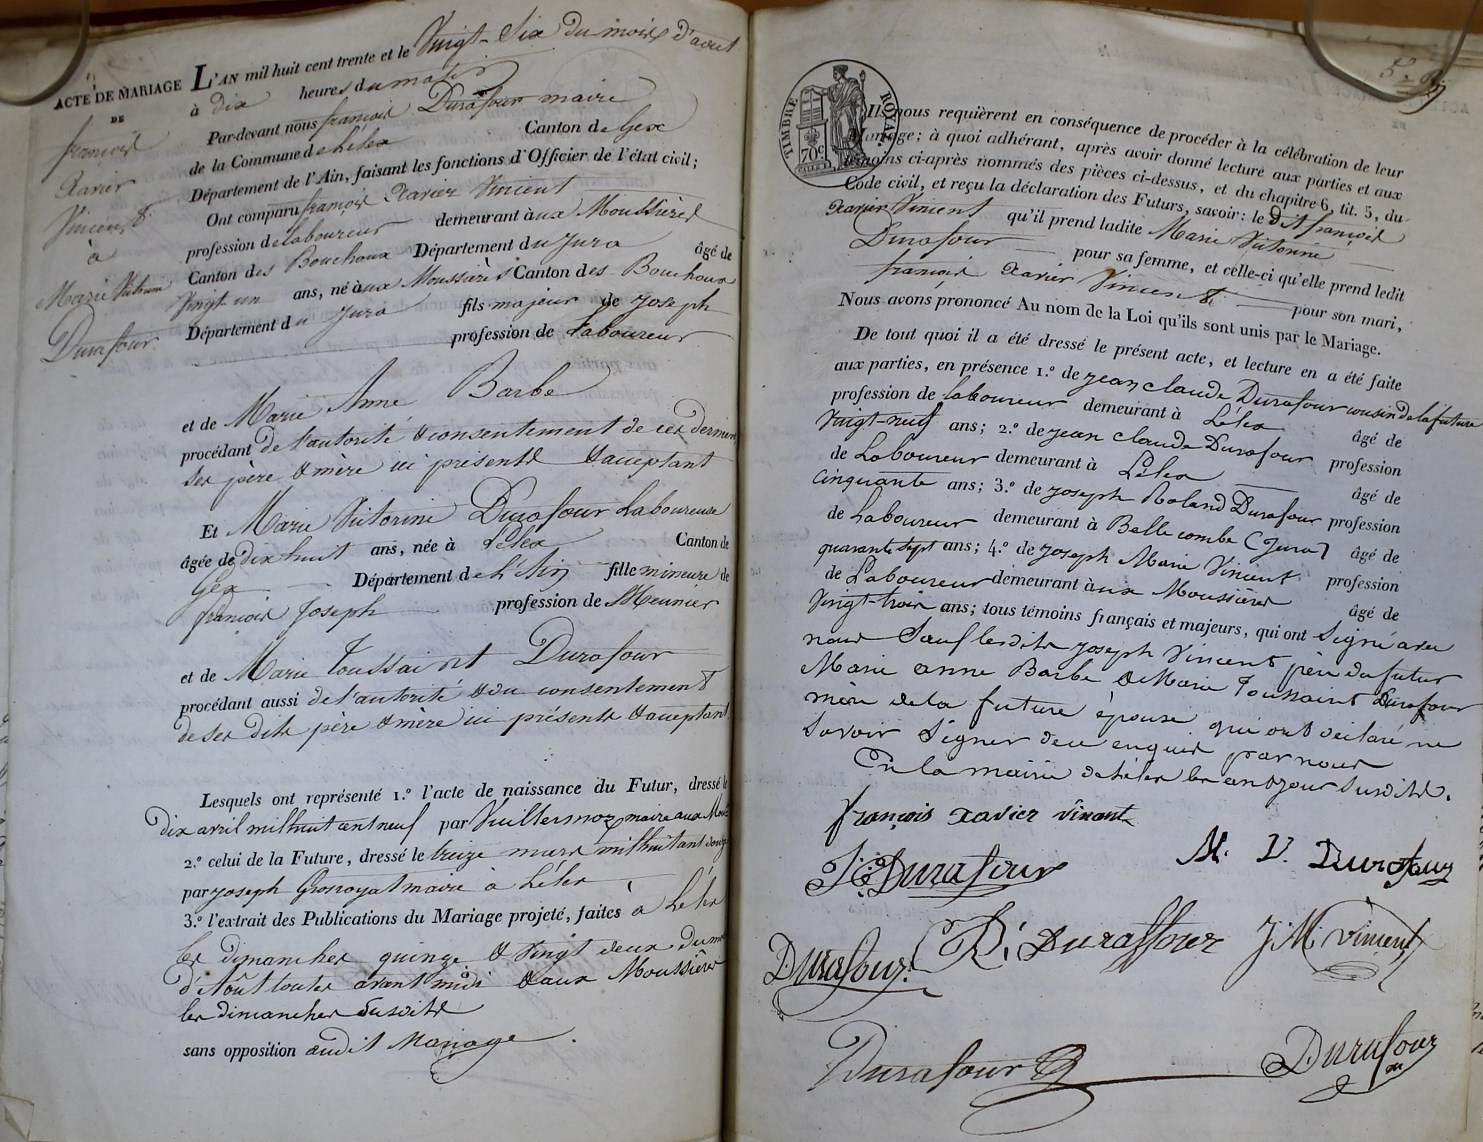 ACTE DE MARIAGE
DE
françois
Xavier
Vincent
à
Marie Victorine
Durafour
L'AN mil huit cent trente et le Vingt-Six du mois d'aout
à dix heures du matin
Par-devant nous françois Durafour maire
de la Commune de Lélex Canton de Gex
Département de l'Ain, faisant les fonctions d'Officier de l'état civil;
Ont comparu françois Xavier Vincent
profession de laboureur demeurant à aux Moussières
Canton des Bouchoux Département du Jura âgé de
Vingt un ans, né à aux Moussières Canton des Bouchoux
Département du Jura fils majeur de Joseph
profession de Laboureur
et de Marie Anne Barbe
procédant de l'autorité & consentement de ces derniers
ses père & mère ici présents & acceptant
Et Marie Victorine Durafour Laboureuse
âgée de dix huit ans, née à Lélex Canton de
Gex Département de L'Ain fille mineure de
françois Joseph profession de Meunier
et de Marie Toussaint Durafour
procédant aussi de l'autorité & du consentement
de ses dits père & mère ici présents & acceptant
Lesquels ont représenté 1.° l'acte de naissance du Futur, dressé le
dix avril mil huit cent neuf par Vuillermoz maire aux Mous
2.° celui de la Future, dressé le treize mars mil huit cent douze
par Joseph Grosroyat maire à Lélex
3.° l'extrait des Publications du Mariage projeté, faites à Lélex
les dimanches quinze & Vingt deux du mois
d'Aôut toutes avant midi & aux Moussières
les dimanches susdits
sans opposition audit Mariage.
TIMBRE ROYAL
70c
Ils nous requièrent en conséquence de procéder à la célébration de leur
Mariage; à quoi adhérant, après avoir donné lecture aux parties et aux
témoins ci-après nommés des pièces ci-dessus, et du chapitre 6, tit. 5, du
Code civil, et reçu la déclaration des Futurs, savoir: le dit françois
Xavier Vincent qu'il prend ladite Marie Victorine
Durafour pour sa femme, et celle-ci qu'elle prend ledit
françois Xavier Vincent pour son mari,
Nous avons prononcé Au nom de la Loi qu'ils sont unis par le Mariage.
De tout quoi il a été dressé le présent acte, et lecture en a été faite
aux parties, en présence 1.° de Jean claude Durafour cousin de la future
profession de laboureur demeurant à Lélex âgé de
Vingt-neuf ans; 2.° de Jean Claude Durafour profession
de Laboureur demeurant à Lélex âgé de
cinquante ans; 3.° de Joseph Roland Durafour profession
de Laboureur demeurant à Bellecombe (Jura) âgé de
quarante sept ans; 4.° de Joseph Marie Vincent profession
de Laboureur demeurant à aux Moussières âgé de
Vingt-trois ans; tous témoins français et majeurs, qui ont Signé avec
nous Sauf lesdits Joseph Vincent père du futur
Marie anne Barbe & Marie Toussaint Durafour
mère de la future épouse qui ont déclaré ne
savoir Signer de ce enquis par nous
En la mairie de Lélex les an & jour susdits.
françois xavier vincent
J. Durafour
M. V. Durafour
Durafour.
R. Duraffour
J M vincent
Durafour
Durafour